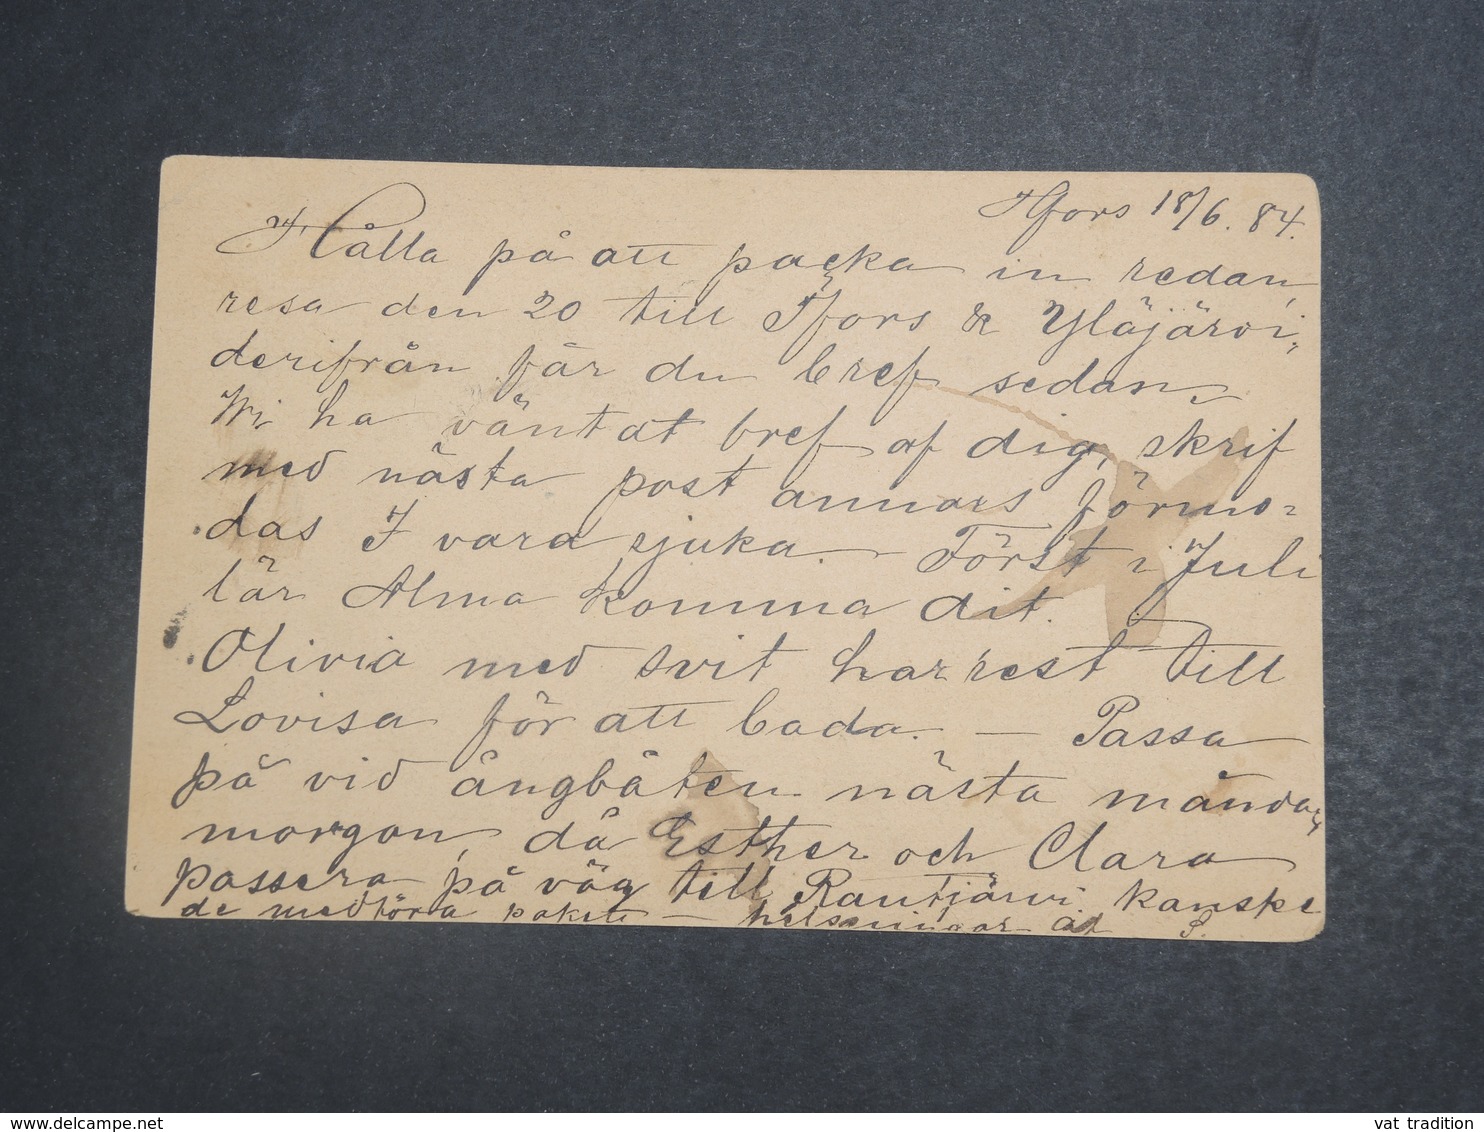 Hfors 18/6. 84.
Hålla på att packa in redan,
resa den 20 till Tfors & Ylöjärvi,
derifrån får du bref sedan,
Wi ha väntat bref af dig, skrif
med nästa post annars förmo=
das I vara sjuka. — Först i Juli
lär Alma komma dit.
Olivia med svit har rest till
Lovisa för att bada. — Passa
på vid ångbåten nästa måndag
morgon, då Esther och Clara
passera på väg till Rautjärvi kanske
de medföra paket — helsningar åt S.
vat tradition
delcampe.net